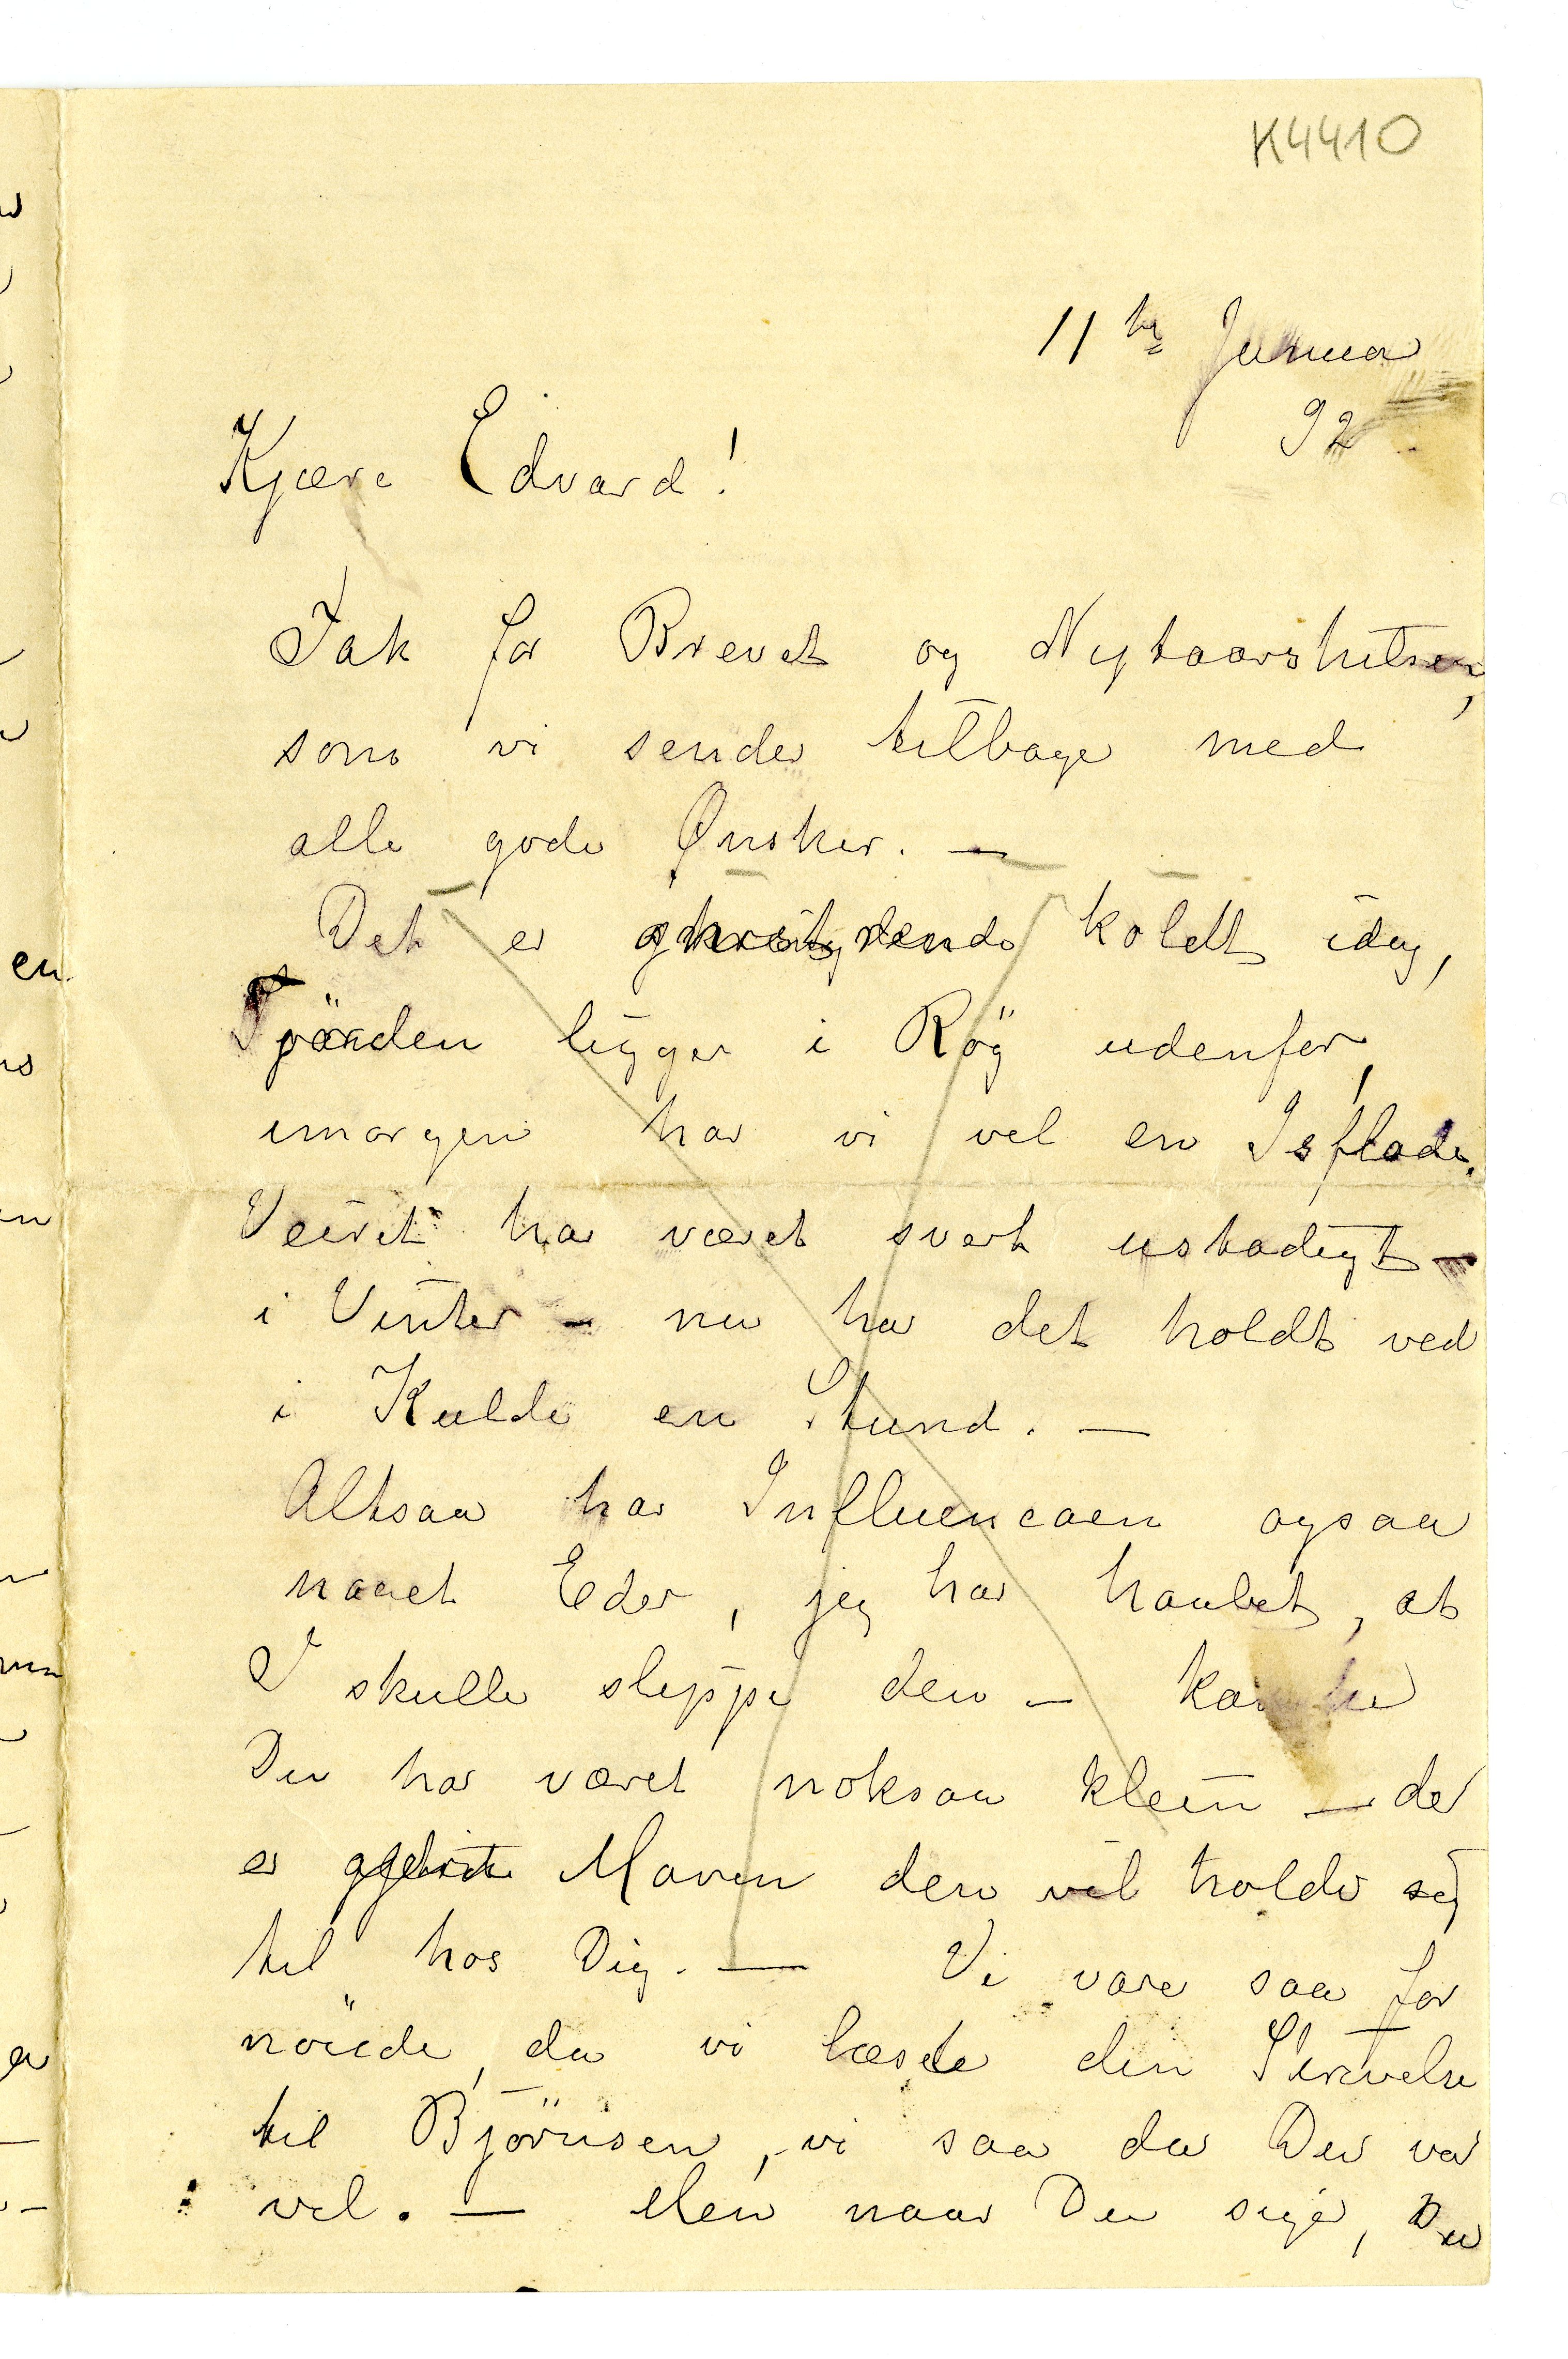 K4410
11te Januar
92
Kjære Edvard!
Tak for Brevet og Nytaarshilsen,
som vi sender tilbage med
alle gode Ønsker. —
Det er koldt idag,
Fjörden ligger i Rög udenfor,
imorgen har vi vel en Isflade.
Veiret har været svert ustadigt —
i Vinter – nu har det holdt ved
i Kulde en Stund. —
Altsaa har Influencaen ogsaa
naaet Eder, jeg har haabet, at
I skulle slippe den – kanske
Du har været noksaa klein – det
er Maven den vil holde sig
til hos Dig. — Vi vare saa for
nöiede, da vi læste din Skrivelse
til Björnson, vi saa da Du var
vel. — Men naar Du siger, Du